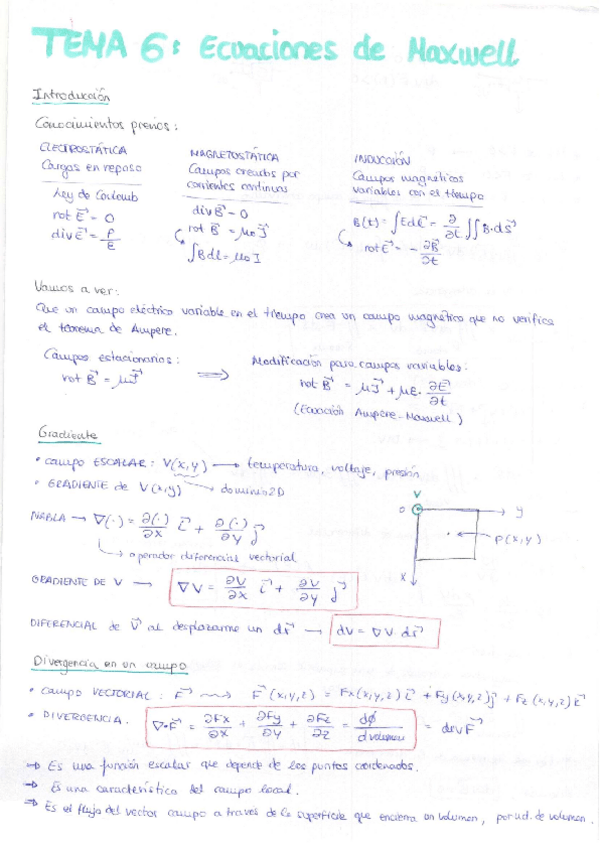 TEMA 6: Ecuaciones de Maxwell
Introducción
Conocimientos previos:
ELECTROSTÁTICA
Cargas en reposo
Ley de Coulomb
rot E⃗ = 0
div E⃗ = ρ/ε
MAGNETOSTÁTICA
Campos creados por
corrientes continuas
div B⃗ = 0
rot B⃗ = μ₀ J⃗
∫Bdl = μ₀ I
INDUCCIÓN
Campos magnéticos
variables con el tiempo
B(t) = ∫Edl⃗ = ∂/∂t ∬B·dS⃗
rot E⃗ = - ∂B⃗/∂t
Vamos a ver:
Que un campo eléctrico variable en el tiempo crea un campo magnético que no verifica
el teorema de Ampere.
Campos estacionarios:
rot B⃗ = μJ⃗
⟹
Modificación para campos variables:
rot B⃗ = μJ⃗ + με· ∂E⃗/∂t
(Ecuación Ampere-Maxwell)
Gradiente
• campo ESCALAR: V(x,y) → temperatura, voltaje, presión
• GRADIENTE de V(x,y) → dominio 2D
NABLA → ∇(·) = ∂(·)/∂x i⃗ + ∂(·)/∂y j⃗
→ operador diferencial vectorial
V
0
y
P(x,y)
x
GRADIENTE DE V → ∇V = ∂V/∂x i⃗ + ∂V/∂y j⃗
DIFERENCIAL de V⃗ al desplazarme un dr⃗ → dV = ∇V dr⃗
Divergencia en un campo
• campo VECTORIAL: F⃗ ⇝ F⃗(x,y,z) = Fx(x,y,z) i⃗ + Fy(x,y,z) j⃗ + Fz(x,y,z) k⃗
• DIVERGENCIA. ∇·F⃗ = ∂Fx/∂x + ∂Fy/∂y + ∂Fz/∂z = dϕ/dvolumen = div F⃗
⇒ Es una función escalar que depende de los puntos coordenados.
⇒ Es una característica del campo local.
⇒ Es el flujo del vector campo a traves de la superficie que encierra un volumen, por ud. de volumen.